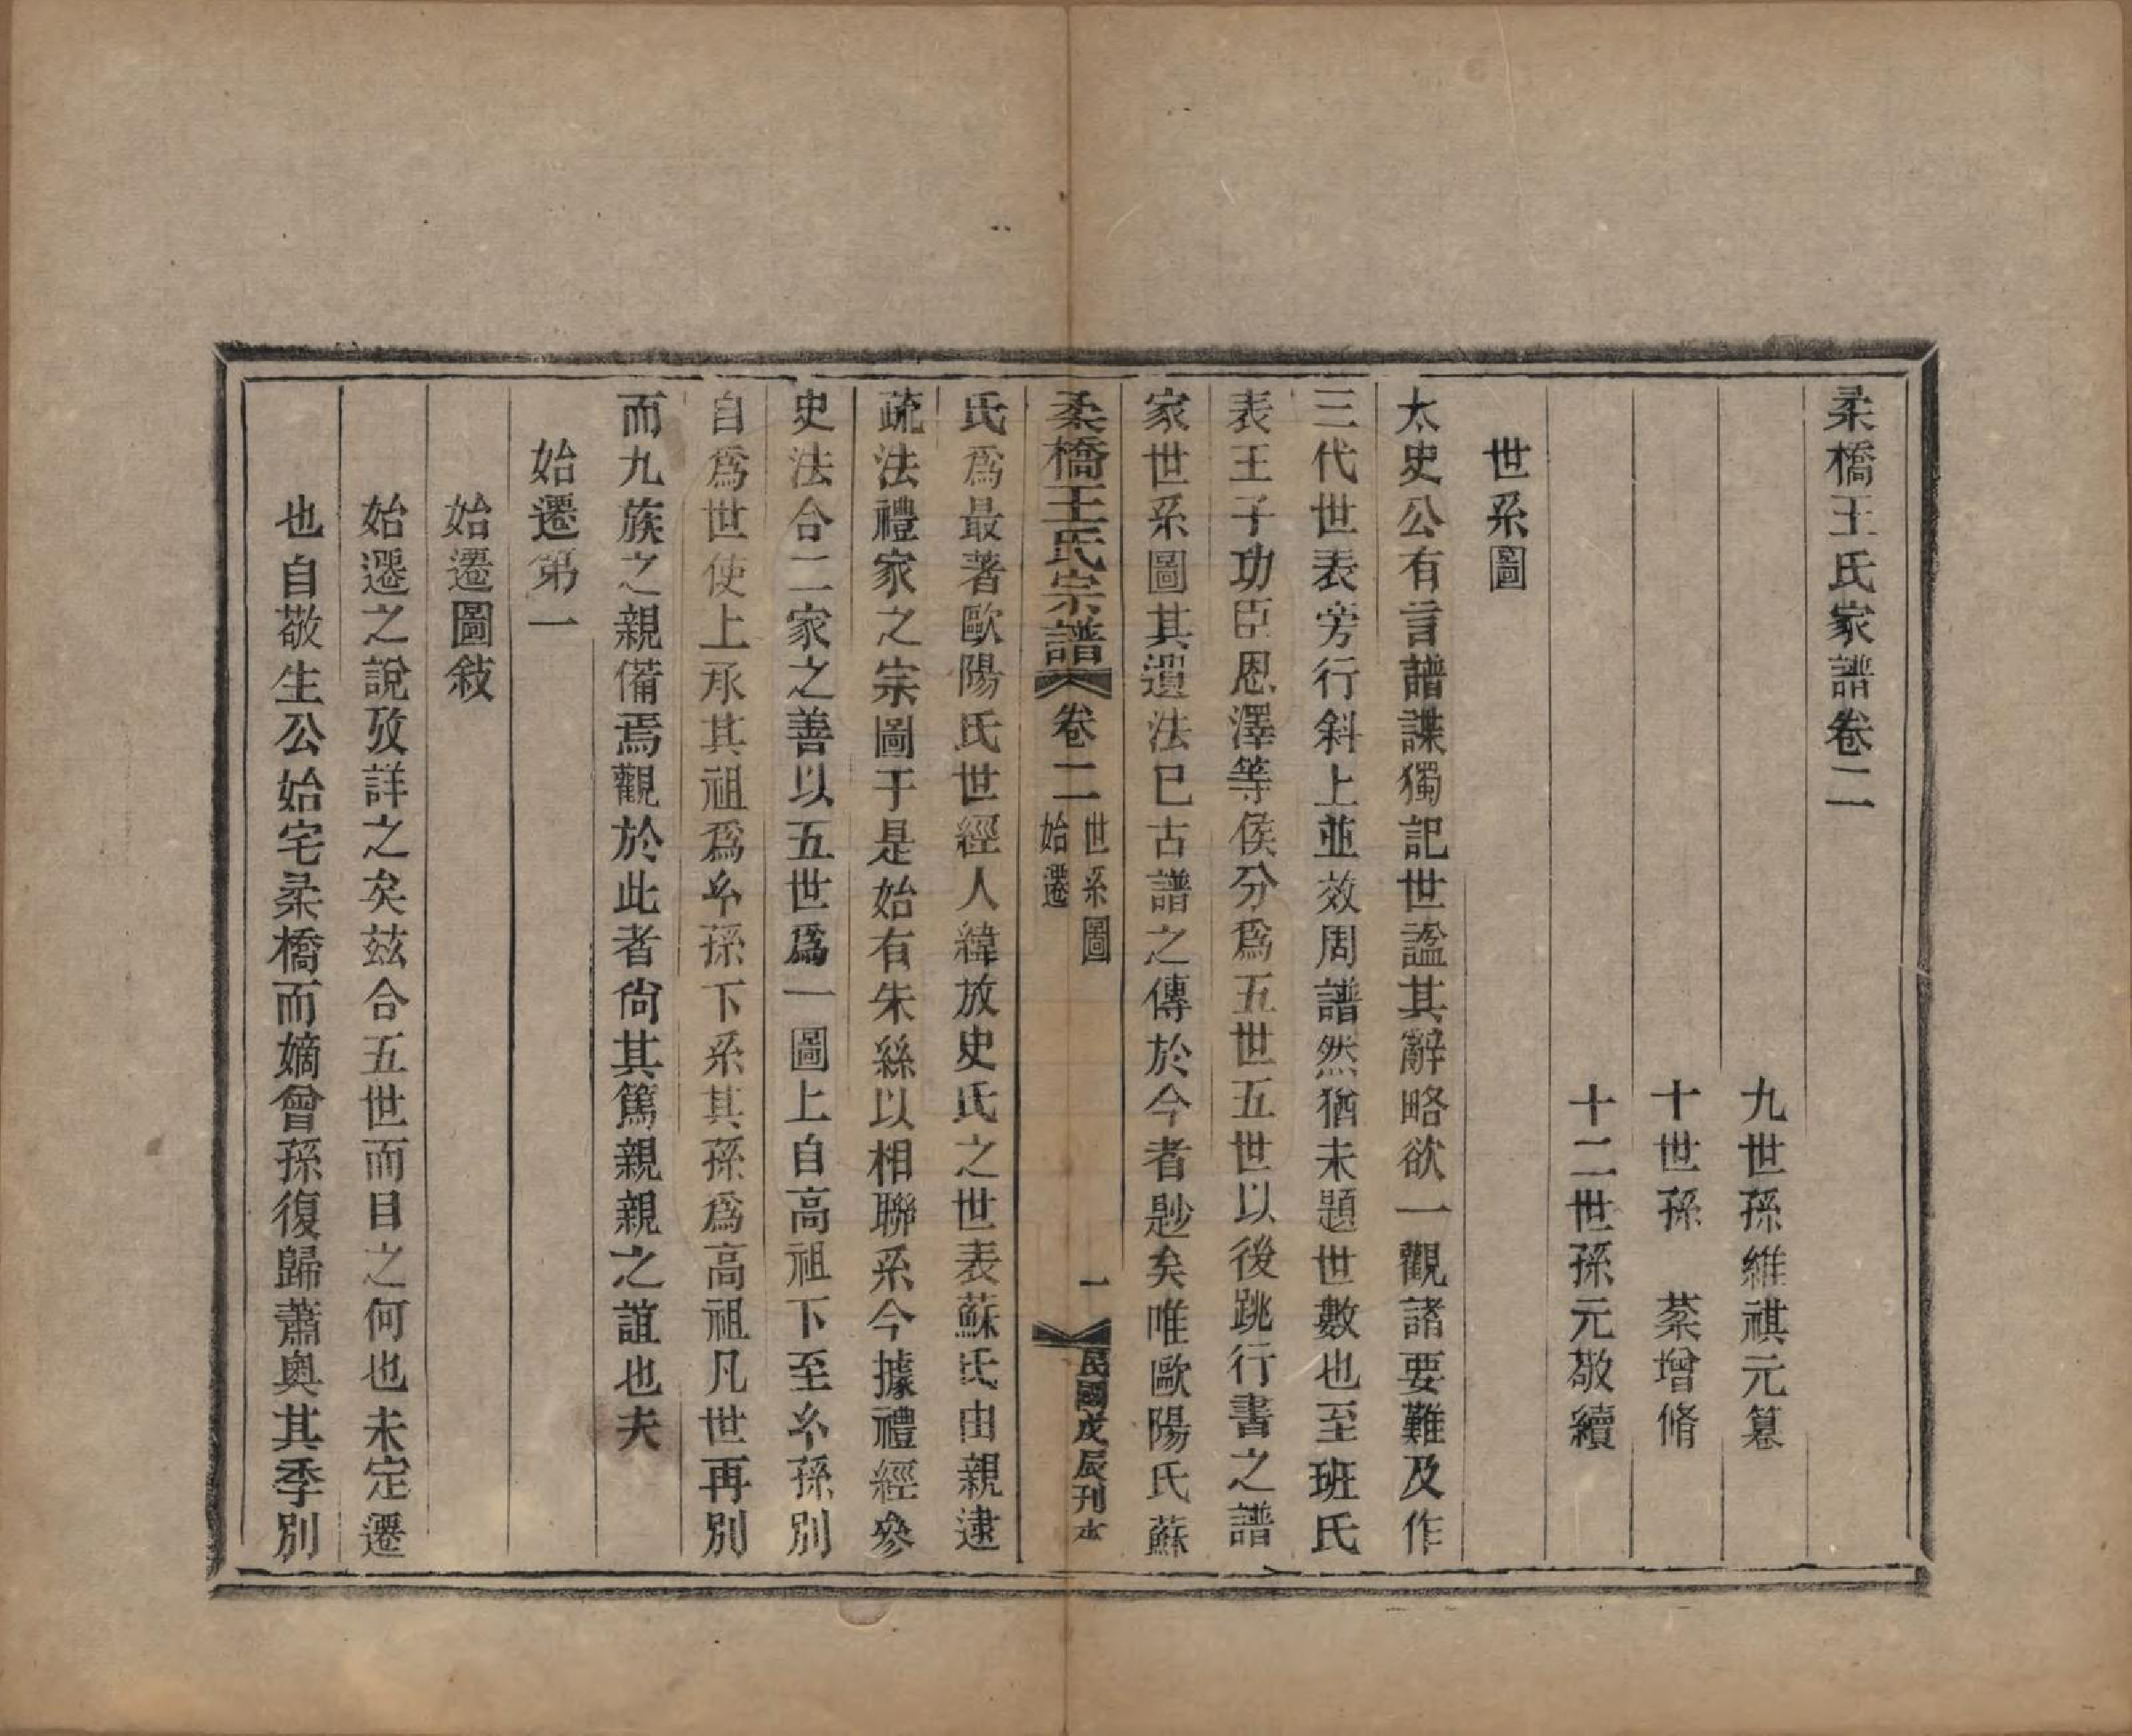 柔橋王氏家譜卷二
九世孫維祺元篹
十世孫　棻增脩
十二世孫元敬續
世系圖
太史公有言譜諜獨記世謚其辭略欲一觀諸要難及作
三代世表旁行斜上並效周譜然猶未題世數也至班氏
表王子功臣恩澤等侯分爲五世五世以後跳行書之譜
家世系圖其遺法已古譜之傳於今者尟矣唯歐陽氏蘇
柔橋王氏宗譜　卷二　世系圖　始遷　一　民國戊辰刊本
氏爲最著歐陽氏世經人緯放史氏之世表蘇氏由親逮
疏法禮家之宗圖于是始有朱絲以相聯系今據禮經參
史法合二家之善以五世爲一圖上自高祖下至厶孫別
自爲世使上承其祖爲厶孫下系其孫爲高祖凡世再別
而九族之親備焉觀於此者尙其篤親親之誼也夫
始遷第一
始遷圖敍
始遷之說攷詳之矣玆合五世而目之何也未定遷
也自敬生公始宅柔橋而嫡曾孫復歸蕭奧其季別